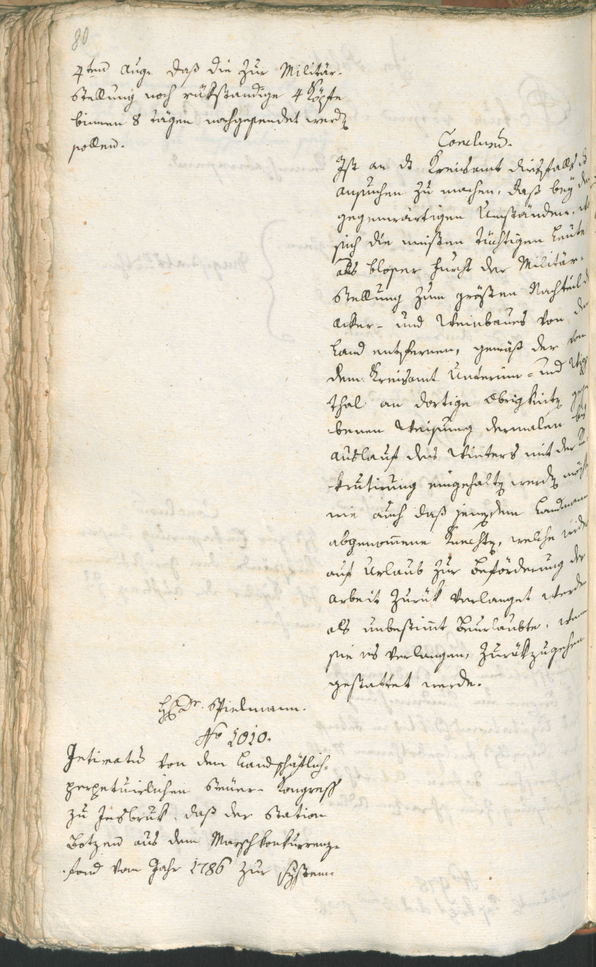 80
4ten Aug. daß die zur Militär-
stellung noch rükständige 4 Köpfe
binnen 8 tägen nachgesendet werdn
sollen.
Conclusū.
Ist an ds Kreisamt diesfalls
ansuchen zu machen, daß bey
gegenwärtigen Umständen,
sich die meisten tüchtigen Leute
aus bloser Furcht der Militär-
stellung zum größten Nachteil
aker- und Weinbaues von
Land entfernen, gemäß der von
dem Kreisamt Unterinn- und Wipp
thal an dortige Obrigkeitn
benen Weisung dermalen bis
auslauf des Winters mit der Re
krutirung eingehaltn werdn möchte
wie auch daß jene dem Landmann
abgenommene Knechte, welche
auf Urlaub zur Beförderung der
arbeit zurük verlanget werden
als unbestimt Beurlaubte, wenn
sie es verlangen, zurükzugehen
gestattet werde.
H. Dr. Spielmann.
No 1010.
Intimatū von dem Landschäftlich-
perpetuirlichen Steuer-Kongreß
zu Insbruk, daß der Station
Botzen aus dem Marschkonkurrenz-
fond vom Jahr 1786 zur system-